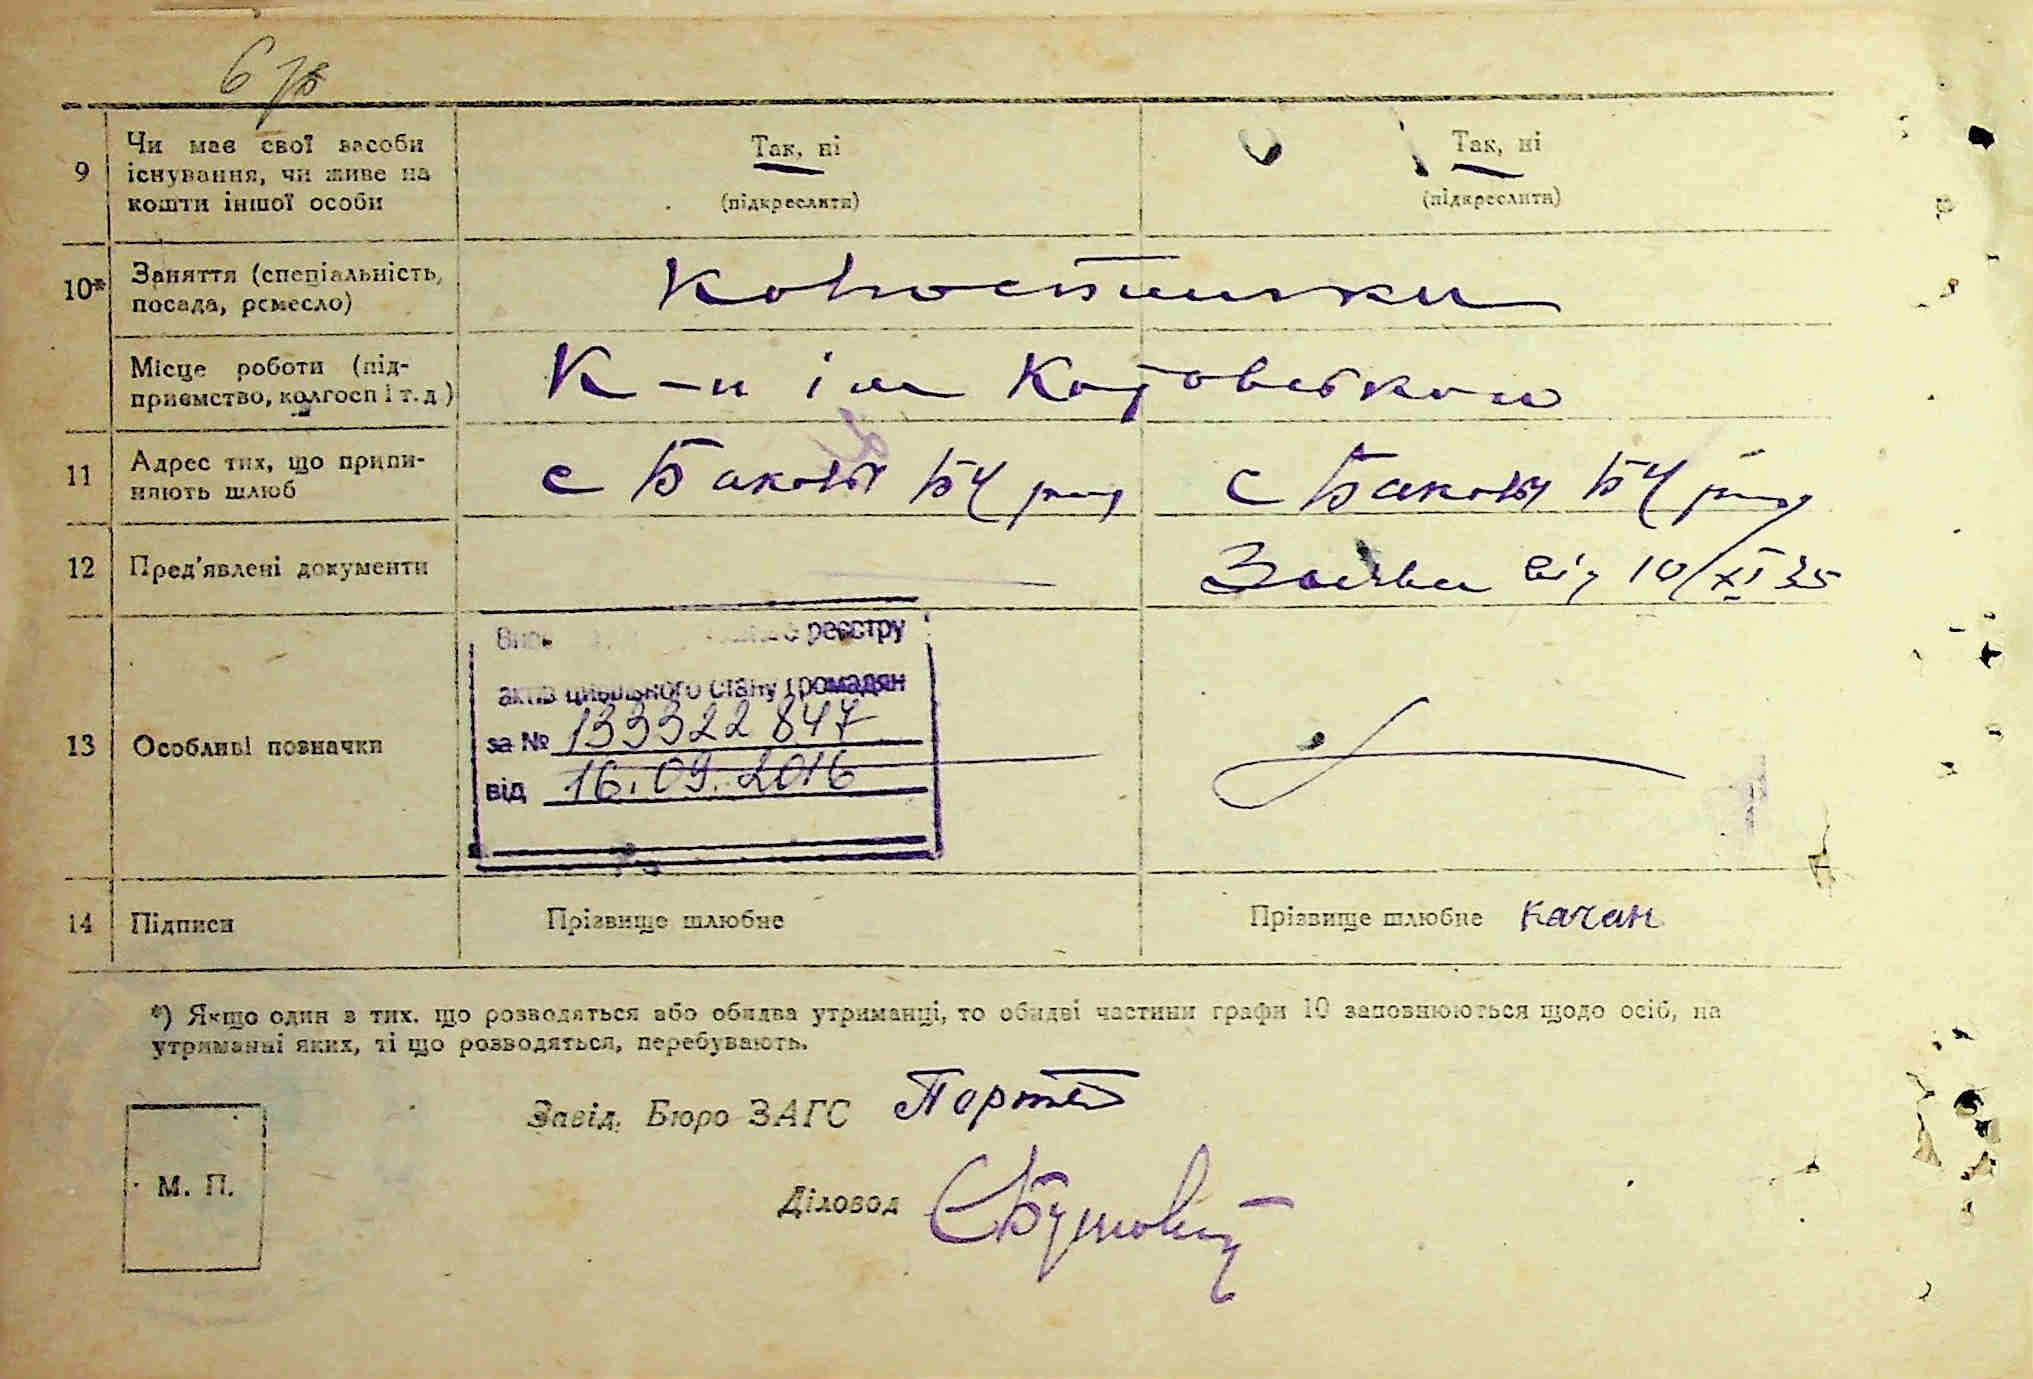 9
Чи має свої засоби
існування, чи живе на
кошти іншої особи
Так, ні
(підкреслити)
Так, ні
(підкреслити)
10*
Заняття (спеціальність,
посада, ремесло)
Місце роботи (під-
приємство, колгосп і т. д.)
К-п ім Котовського
11
Адрес тих, що припи-
няють шлюб
с БЧ
с БЧ
12
Пред'явлені документи
Заява від 10/XI 35
13
Особливі позначки
реєстру
актів цивільного стану громадян
за № 133322 847
від 16.09.2016
14
Підписи
Прізвище шлюбне
Прізвище шлюбне Качан
*) Якщо один з тих, що розводяться або обидва утриманці, то обидві частини графи 10 заповнюються щодо осіб, на
утриманні яких, ті що розводяться, перебувають.
Завід. Бюро ЗАГС
Діловод
М. П.